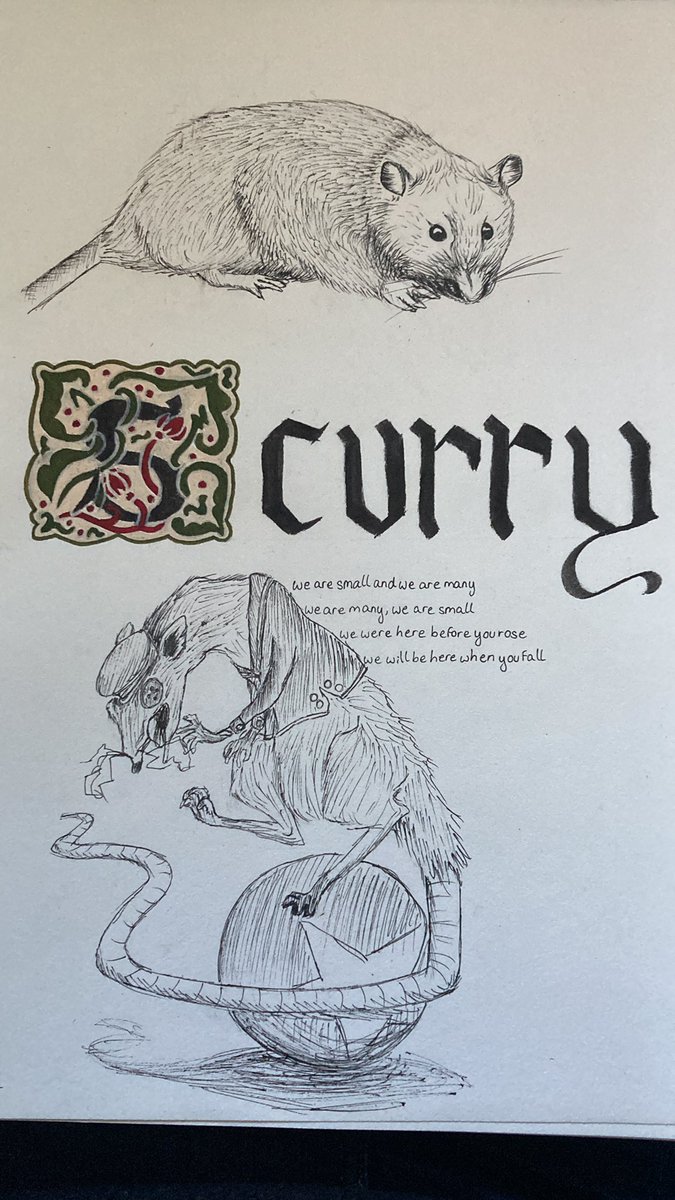 Scurry
we are small and we are many
we are many, we are small
we were here before you rose
we will be here when you fall